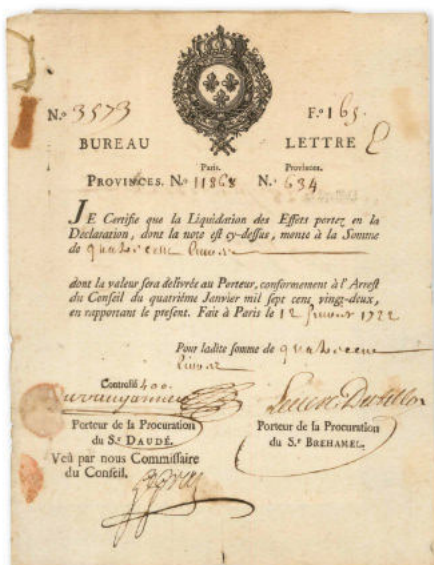 N.º 3573
F.º 165.
BUREAU
LETTRE E
Paris.
Provinces.
PROVINCES. N.º 11868 N.º 634
JE Certifie que la Liquidation des Effets portez en la
Déclaration, dont la note est cy-dessus, monte à la Somme
de quatre cent livres
dont la valeur sera délivrée au Porteur, conformement à l'Arrest
du Conseil du quatriéme Janvier mil sept cent vingt-deux,
en rapportant le present. Fait à Paris le 12 1722
Pour ladite somme de quatre cent
livres
Controllé 400.
Porteur de la Procuration
du S.r DAUDÉ.
Porteur de la Procuration
du S.r BREHAMEL.
Veû par nous Commissaire
du Conseil.